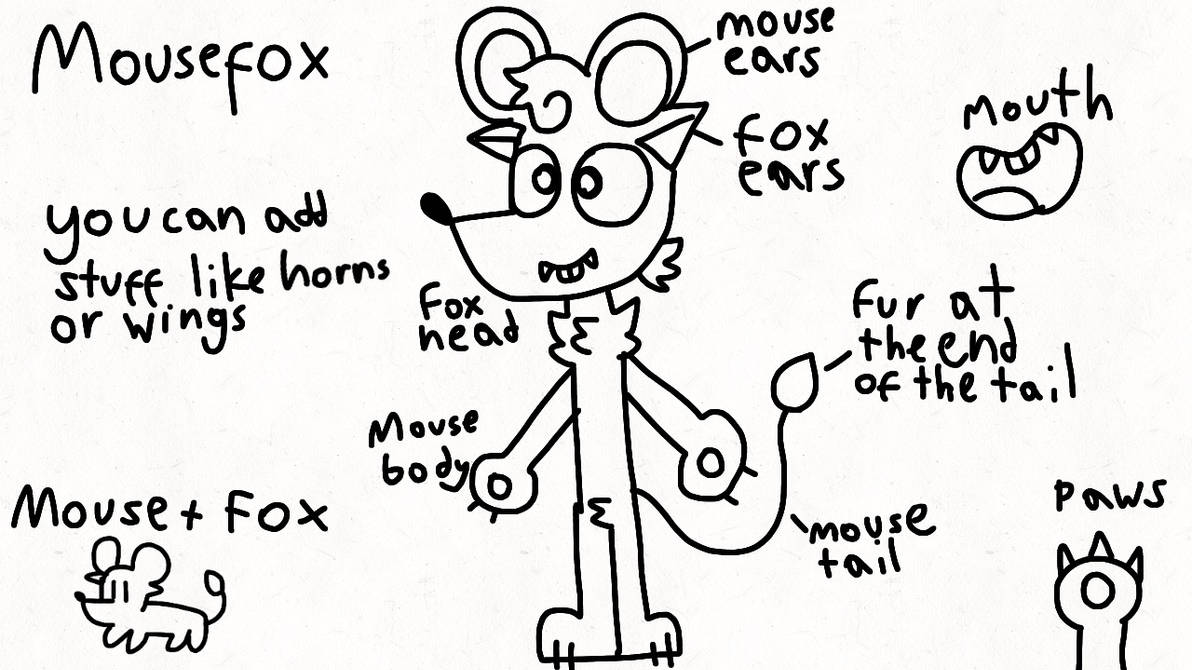 Mousefox
mouse
ears
fox
ears
Mouth
you can add
stuff like horns
or wings
Fox
head
fur at
the end
of the tail
Mouse
body
Mouse + Fox
mouse
tail
Paws